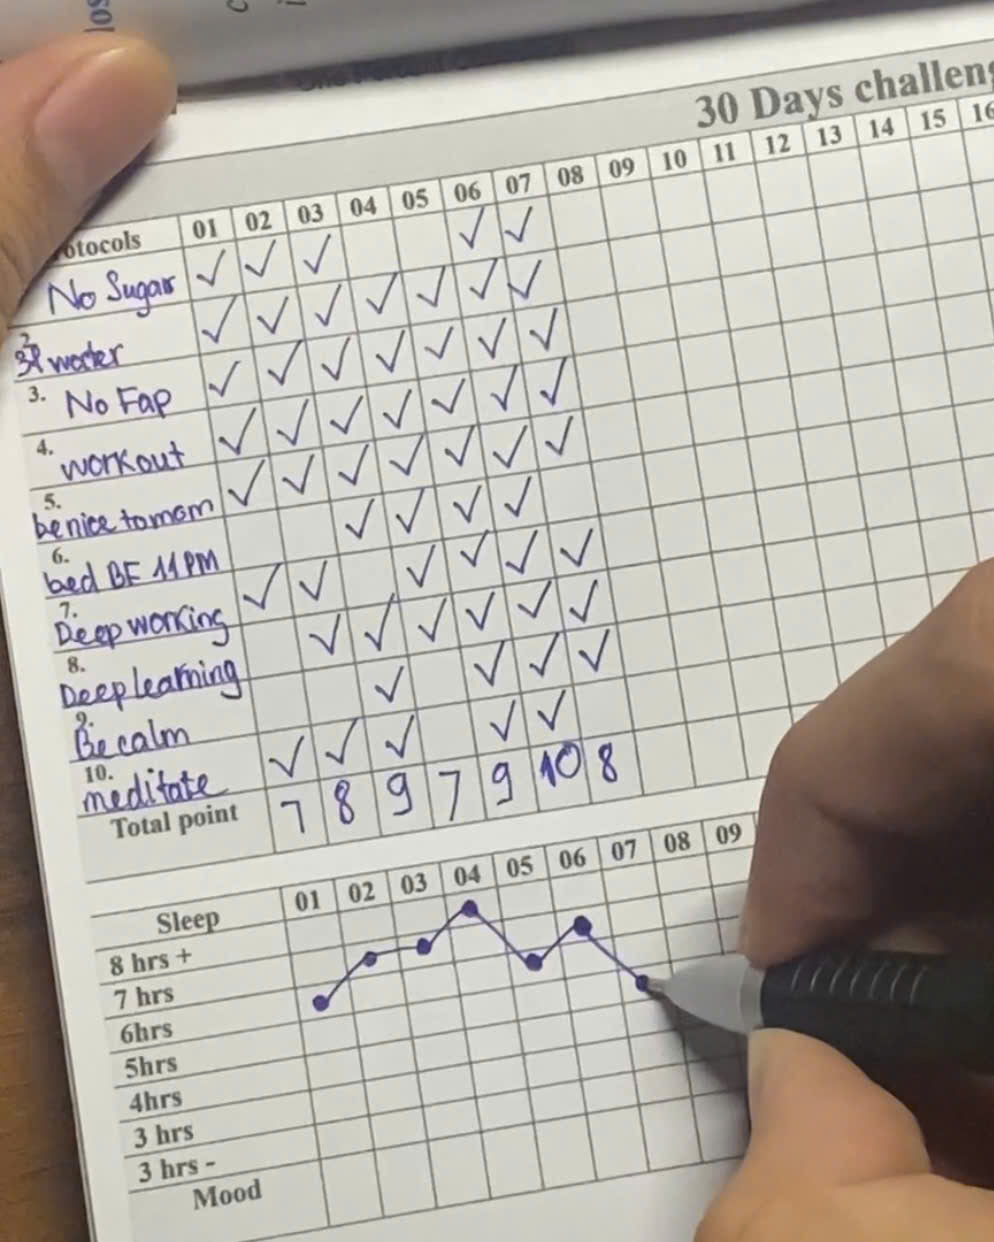 30 Days challen
otocols 01 02 03 04 05 06 07 08 09 10 11 12 13 14 15 16
No Sugar ✓ ✓ ✓ ✓ ✓
2.
3l water ✓ ✓ ✓ ✓ ✓ ✓ ✓
3. No Fap ✓ ✓ ✓ ✓ ✓ ✓ ✓
4. workout ✓ ✓ ✓ ✓ ✓ ✓ ✓
5. be nice to mom ✓ ✓ ✓ ✓ ✓ ✓ ✓
6. bed BF 11 PM ✓ ✓ ✓ ✓
7. Deep working ✓ ✓ ✓ ✓ ✓ ✓
8. Deep learning ✓ ✓ ✓ ✓ ✓ ✓
9. Be calm ✓ ✓ ✓ ✓
10. meditate ✓ ✓ ✓ ✓ ✓
Total point 7 8 9 7 9 10 8
Sleep 01 02 03 04 05 06 07 08 09
8 hrs +
7 hrs
6hrs
5hrs
4hrs
3 hrs
3 hrs -
Mood